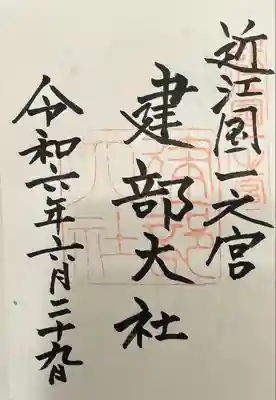 近江国一之宮
建部大社
令和六年六月二十九日